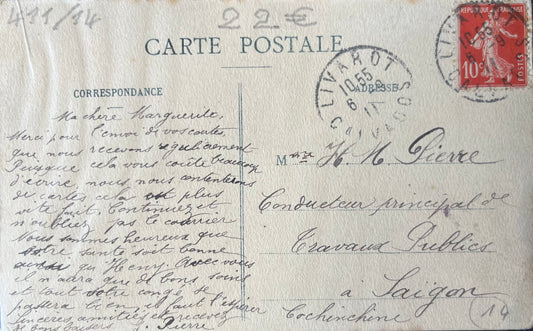 411/14
22€
CARTE POSTALE
CORRESPONDANCE
ADRESSE
Ma chère Marguerite,
Merci pour l'envoi de vos cartes
que nous recevons régulièrement
Puisque cela vous coûte beaucoup
d'écrire, nous, nous contenterons
de cartes cela est plus
vite fait. Continuez et
n'oubliez pas le courrier
Nous sommes heureux que
votre santé soit bonne
ainsi qu'Henry. Avec vous
il n'aura que de bons soins
et tout votre congé se
passera bien il faut l'espérer
Sinceres amitiés et recevez
de bons baisers J. Pierre
Mme H. M. Pierre
Conducteur principal de
Travaux Publics
à Saigon
Cochinchine
14
LIVAROT
10.55
6
11
CALVADOS
REPUBLIQUE FRANÇAISE
10c
POSTES
LIVAROT
10.55